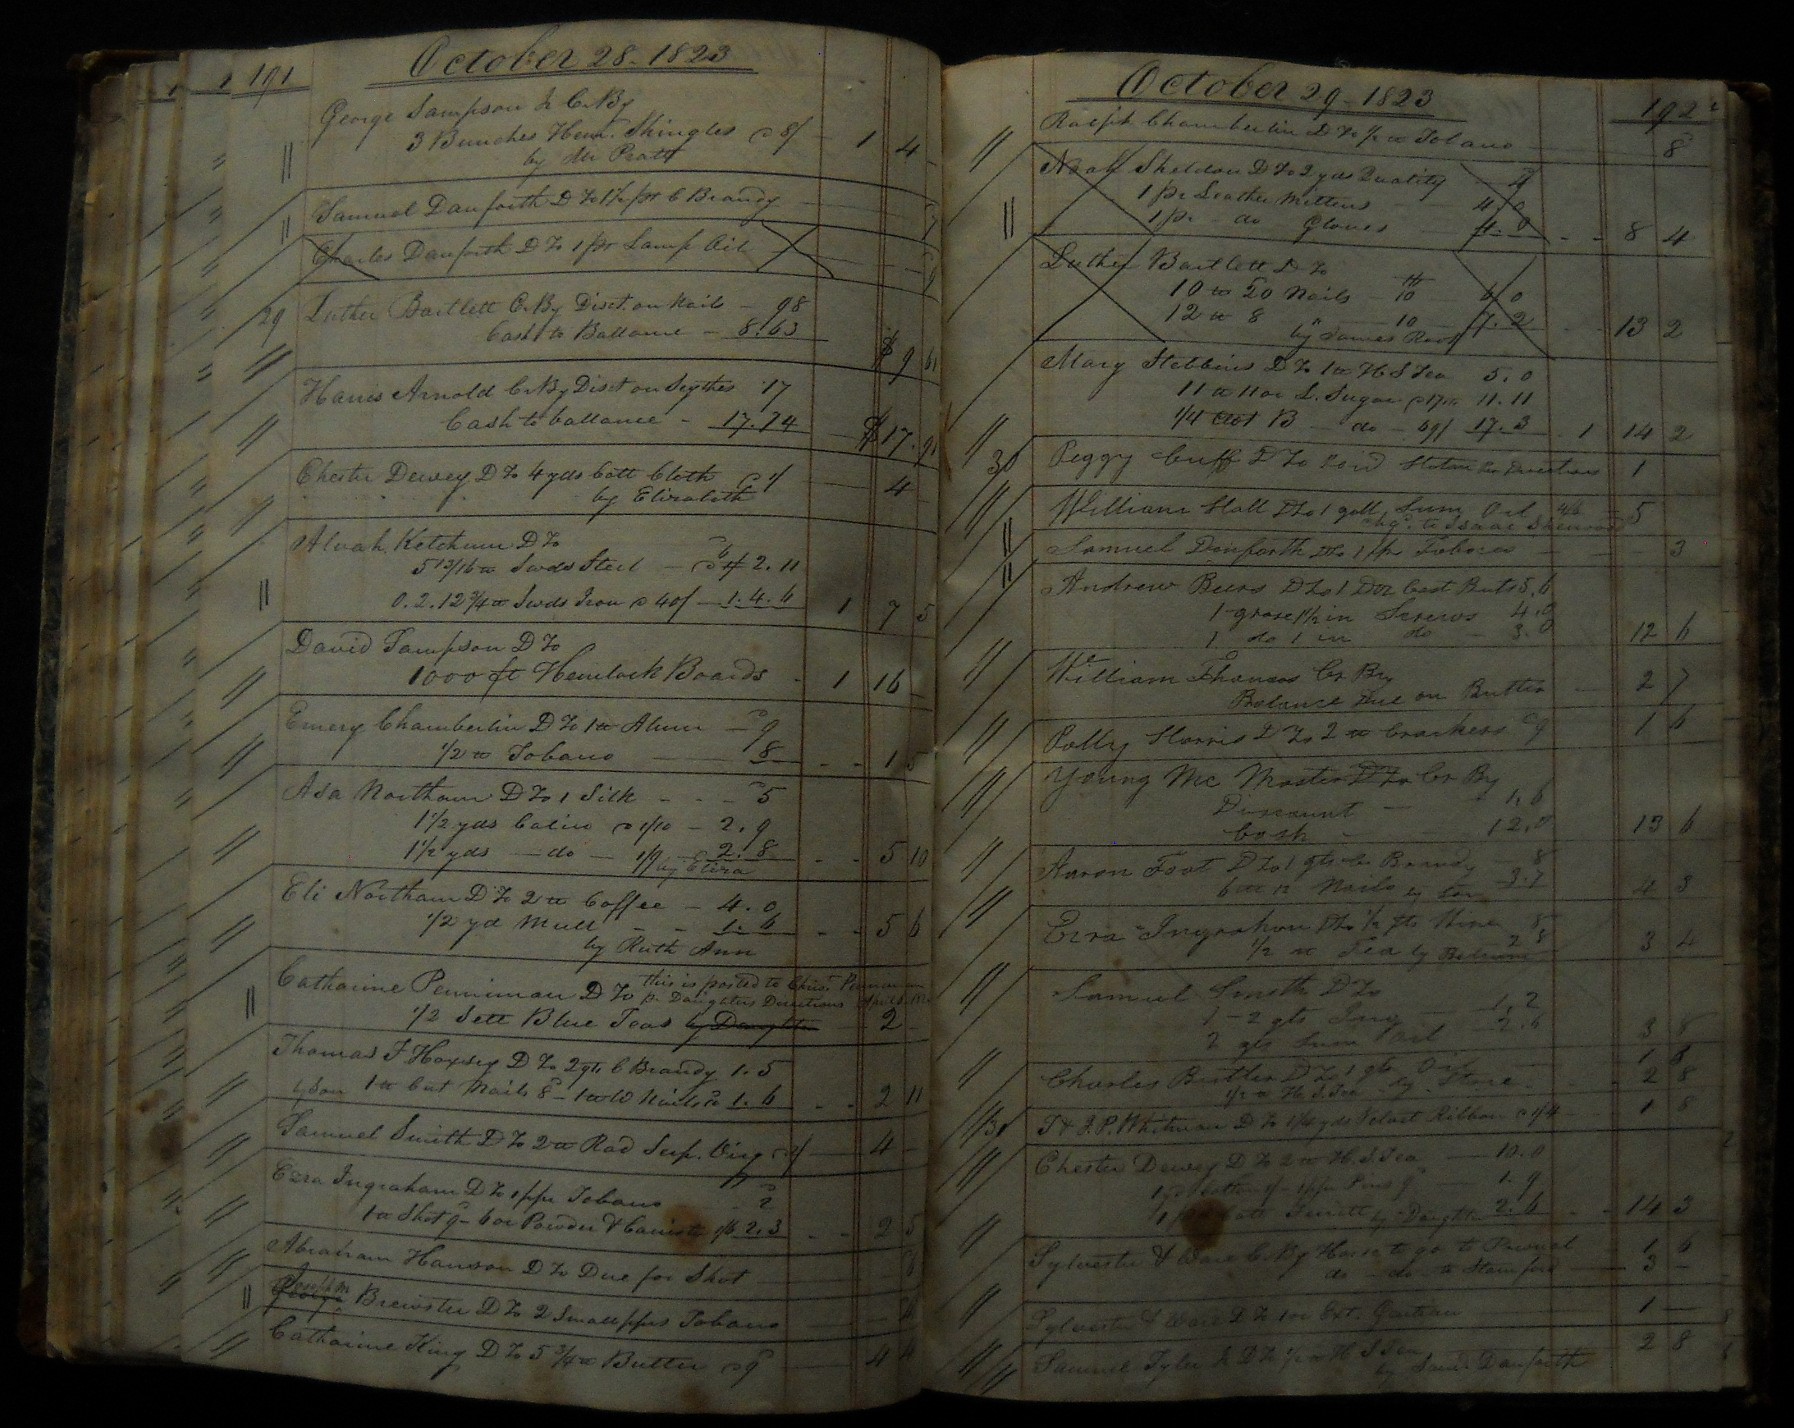 191
October 28 - 1823
George Sampson Jr Cr. By
3 Bunches Hem. Shingles @ 8/ 1 4 -
by Mr Pratt
Samuel Danforth D To 1 1/2 pt C Brandy
Charles Danforth D To 1 pt Lamp Oil
29 Luther Bartlett Cr. By Disct. on Nails - 98
Cash to Ballance - 8.63
$ 9 61
Harris Arnold Cr. By Disct on Scythes 17
Cash to ballance - 17.74 $17.91
Chester Dewey D To 4 yds Cott Cloth @ 1/ 4 -
by Elizabeth
Alvah Ketchum D To
5 13/16 lb Swds Steel - 2.11
0.2.12 3/4 lb Swds Iron @ 40/ - 1.4.6 1 7 5
David Sampson D To
1000 ft Hemlock Boards - 1 16 -
Emery Chamberlin D To 1 lb Alum - 9
1/2 lb Tobacco 8 - - 1 5
Asa Northam D To 1 Silk - - - 5
1 1/2 yds Calico @ 1/10 - 2.9
1 1/2 yds - do - 1/9 2.8 - - 5 10
by Eliza
Eli Northam D To 2 lb Coffee - 4.0
1/2 yd Mull - - 1.6 - - 5 6
by Ruth Ann
Catharine Penniman D To this is posted to
pr Daughters Directions
1/2 Sett Blue Teas by Daughter 2 -
Thomas F Hoxsey D To 2 qts C Brandy 1.5
by Son 1 lb Cut Nails 8 - 1 lb W Nails 1.6 - - 2 11
Samuel Smith D To 2 lb Rad Serp. Virg @ 2/ 4 -
Ezra Ingraham D To 1 ppr Tobacco - 2
1 lb Shot 9 - 6 oz Powder & Canister 1/6 2.3 - - 2 5
Abraham Hanson D To Due for Shot
George Brewster D To 2 Small pprs Tobacco
Catharine King D To 5 3/4 lb Butter @ 9 4 4
October 29 - 1823
192
Ralph Chamberlin D To 1/2 lb Tobacco 8
Noah Sheldon D To 2 yds Quality 4
1 pr Leather Mittens 4.0
1 pr - do Gloves 4.0 - - 8 4
Luther Bartlett D To
10 lb 20 Nails - 10 6 0
12 lb 8 " 10 7.2 - - 13 2
by James Root
Mary Stebbins D To 1 lb H S Tea 5.0
11 lb 11 oz L. Sugar 11.11
1/4 B do - 69/ 17.3 1 14 2
30 Peggy Cuff D To paid 1
William Hall D To 1 gall Sum Oil 5
chgd. to Isaac Sherwood
Samuel Danforth D To 1 ppr Tobacco - - - 3
Andrew Beers D To 1 Doz Cast Buts 5.6
1 grose 1 1/2 in Screws 4.0
1 do 1 in do - 3.0 12 6
William Thomas Cr By
Balance Due on Butter 2 7
Polly Harris D To 2 lb Crackers 9 1 6
Young Mc Master D To Cr By
Discount - 1.6
Cash - 12.0 13 6
Aaron Foot D To 1 qts C Brandy 8
6 lb 12 Nails by Son 3.7 4 3
Ezra Ingraham D To 1/2 pts Wine 8
1/2 lb Tea by 2 8 3 4
Samuel Smith D To
1 - 2 qts Jug 1.2
2 qts Sum Oil 2.6 3 8
Charles Butler D To 1 qts Oil 1 8
1/2 lb H. S. Tea by Store 2 8
T & J. P. Whitman D To 1 1/4 yds Velvet Ribbon @ 1/4 1 8
Chester Dewey D To 2 lb H. S. Tea 10.0
1 yd Cotton 1/ - 1 ppr Pins 9 1.9
by Daughter 2.6 - - 14 3
Sylvester & Ware Cr. By Horse to go to Pownal 1 6
do - do - to Stamford 3 -
Sylvester & Ware D To 1 oz Ext. Gentian 1 -
Samuel Tyler Jr D To 1/2 lb H S Tea 2 8
by Saml. Danforth